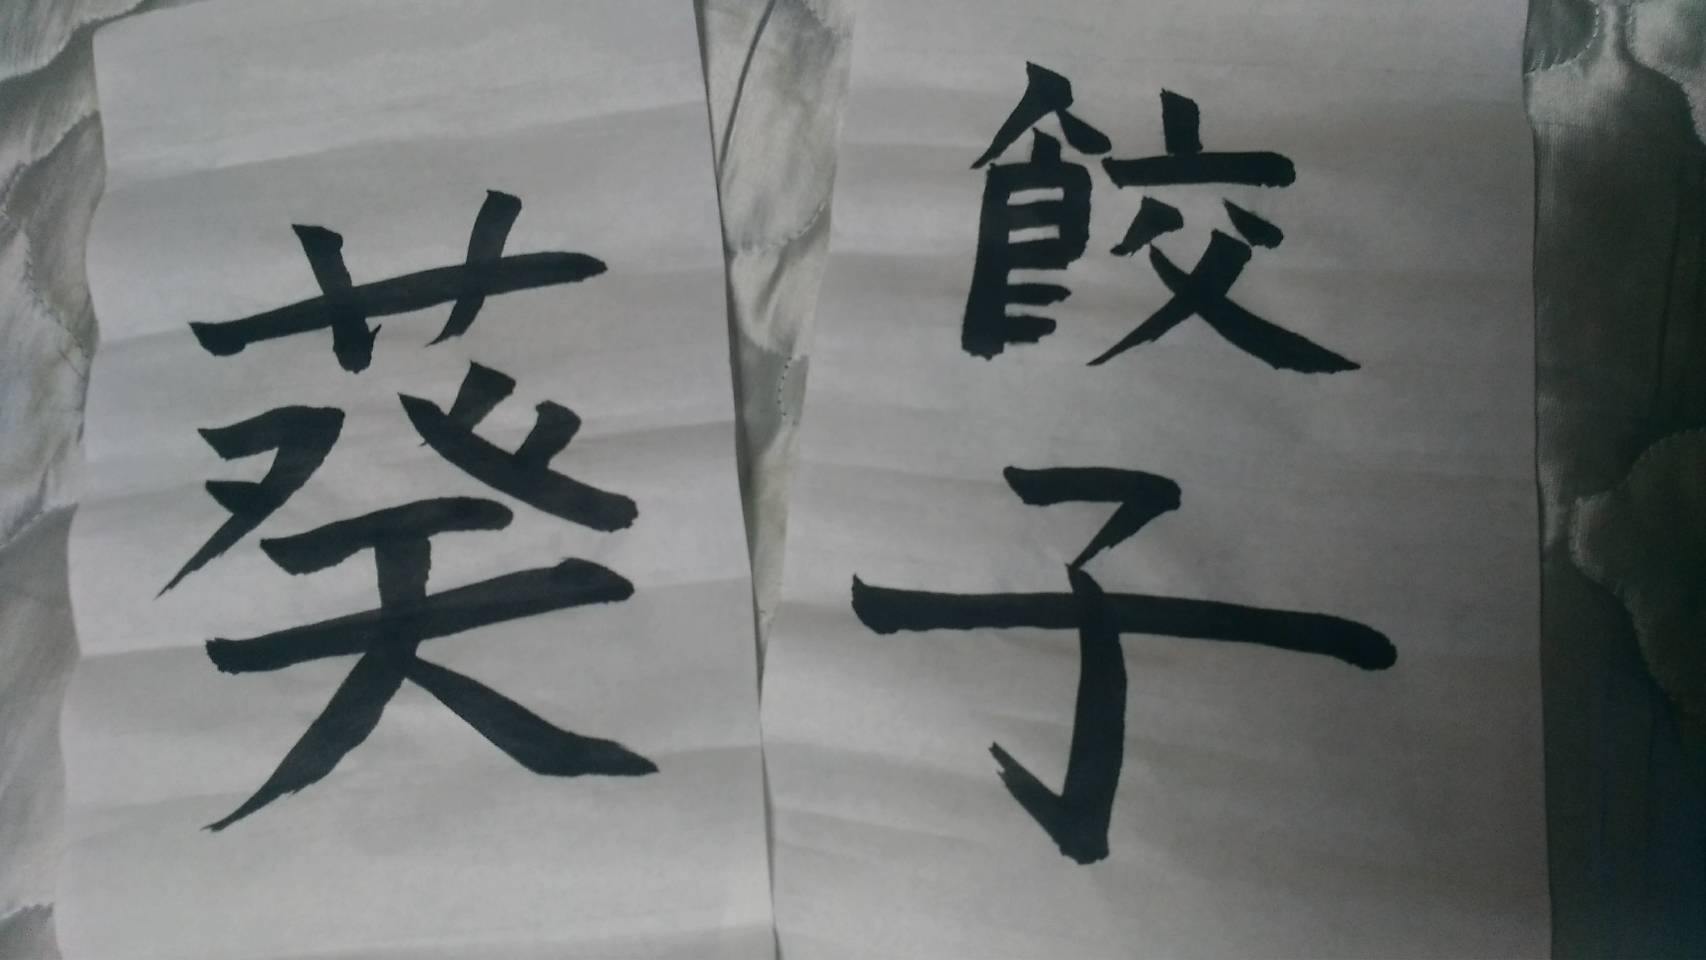 餃子
葵